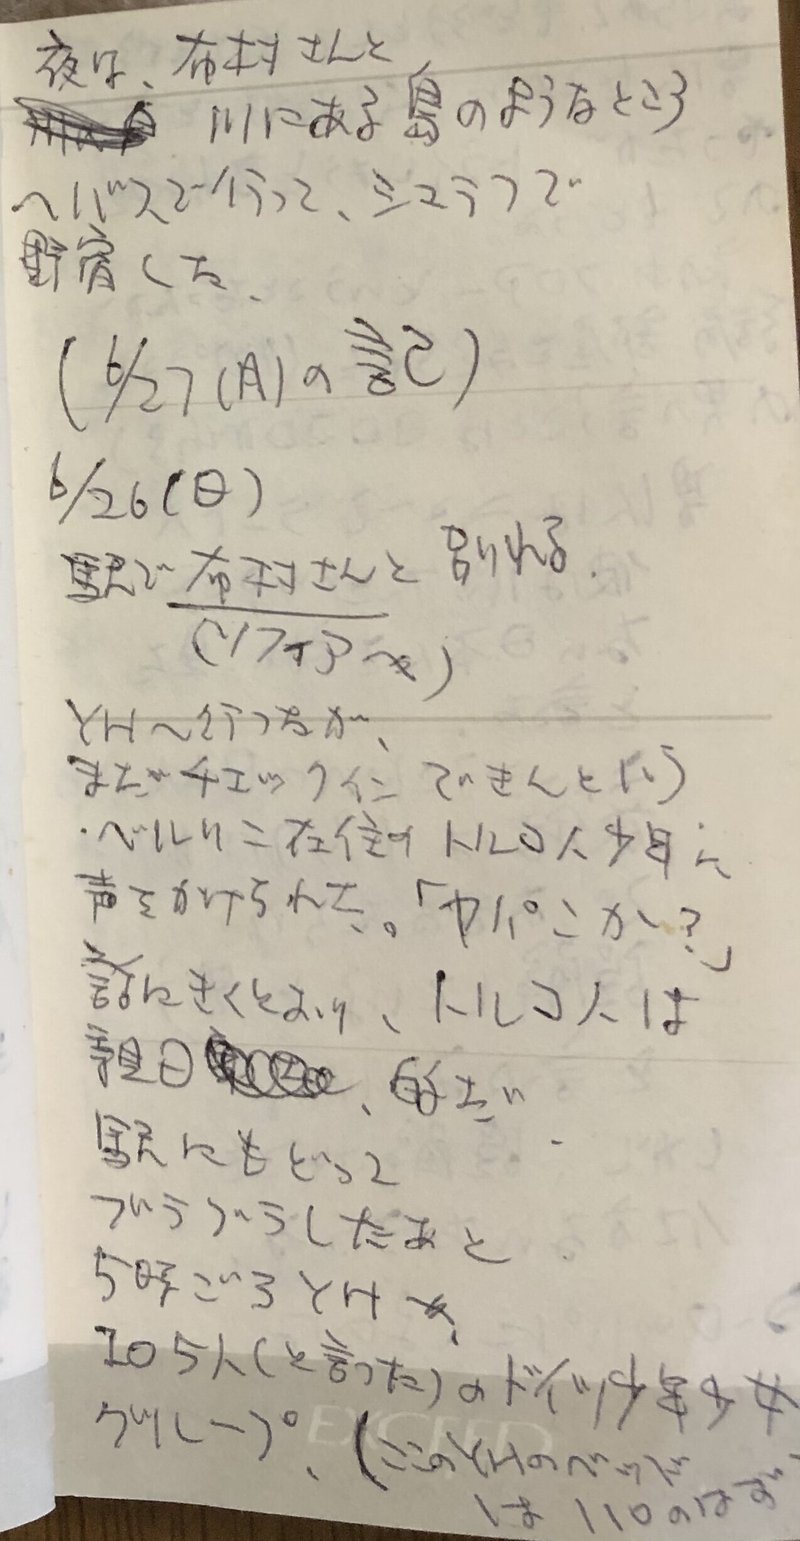 夜は、布村さんと
川にある島のようなところ
へバスで行って、シュラフで
野宿した。
(6/27(月)の記)
6/26(日)
駅で布村さんと別れる.
(ソフィアへ)
YHへ行ったが、
まだチェックインできんという
・ベルリン在住のトルコ人少年に
声をかけられた。「ヤパンか?」
話にきくとおり、トルコ人は
親日、的だ.
駅にもどって
ブラブラしたあと
5時ごろYHへ、
105人(と言った)のドイツ少年少女
グループ、(このYHのベッド
は110のはず
EXCEED